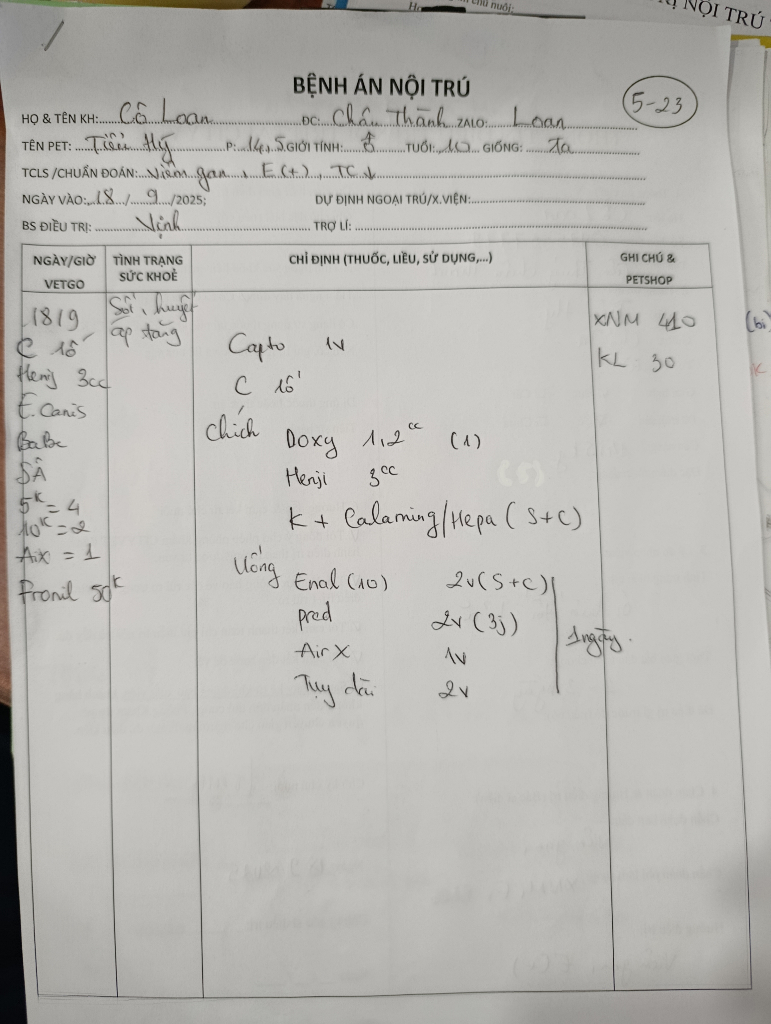 chủ nuôi:
NỘI TRÚ
BỆNH ÁN NỘI TRÚ
5-23
HỌ & TÊN KH: Cô Loan ĐC: Châu Thành ZALO: Loan
TÊN PET: Tiểu Hỷ P: 14,5 GIỚI TÍNH: TUỔI: 10 GIỐNG: Ta
TCLS /CHUẨN ĐOÁN: Viêm gan, E(+), TC↓
NGÀY VÀO: 18 / 9 /2025; DỰ ĐỊNH NGOẠI TRÚ/X.VIỆN:
BS ĐIỀU TRỊ: Vịnh TRỢ LÍ:
NGÀY/GIỜ VETGO
TÌNH TRẠNG SỨC KHOẺ
CHỈ ĐỊNH (THUỐC, LIỀU, SỬ DỤNG,...)
GHI CHÚ & PETSHOP
18/9
C 1ố
Henj 3cc
E.Canis
BaBe
SÂ
5K = 4
10K = 2
AiX = 1
Fronil 50K
Sốt, huyết
áp tăng
Capto 1v
C 1ố
Chích Doxy 1,2cc (1)
Henji 3cc
K + Calaming/Hepa (S+C)
Uống Enal (10) 2v (S+C)
pred 2v (3j)
Air X 1v
Tụy dài 2v
1 ngày.
XNM 410
KL 30